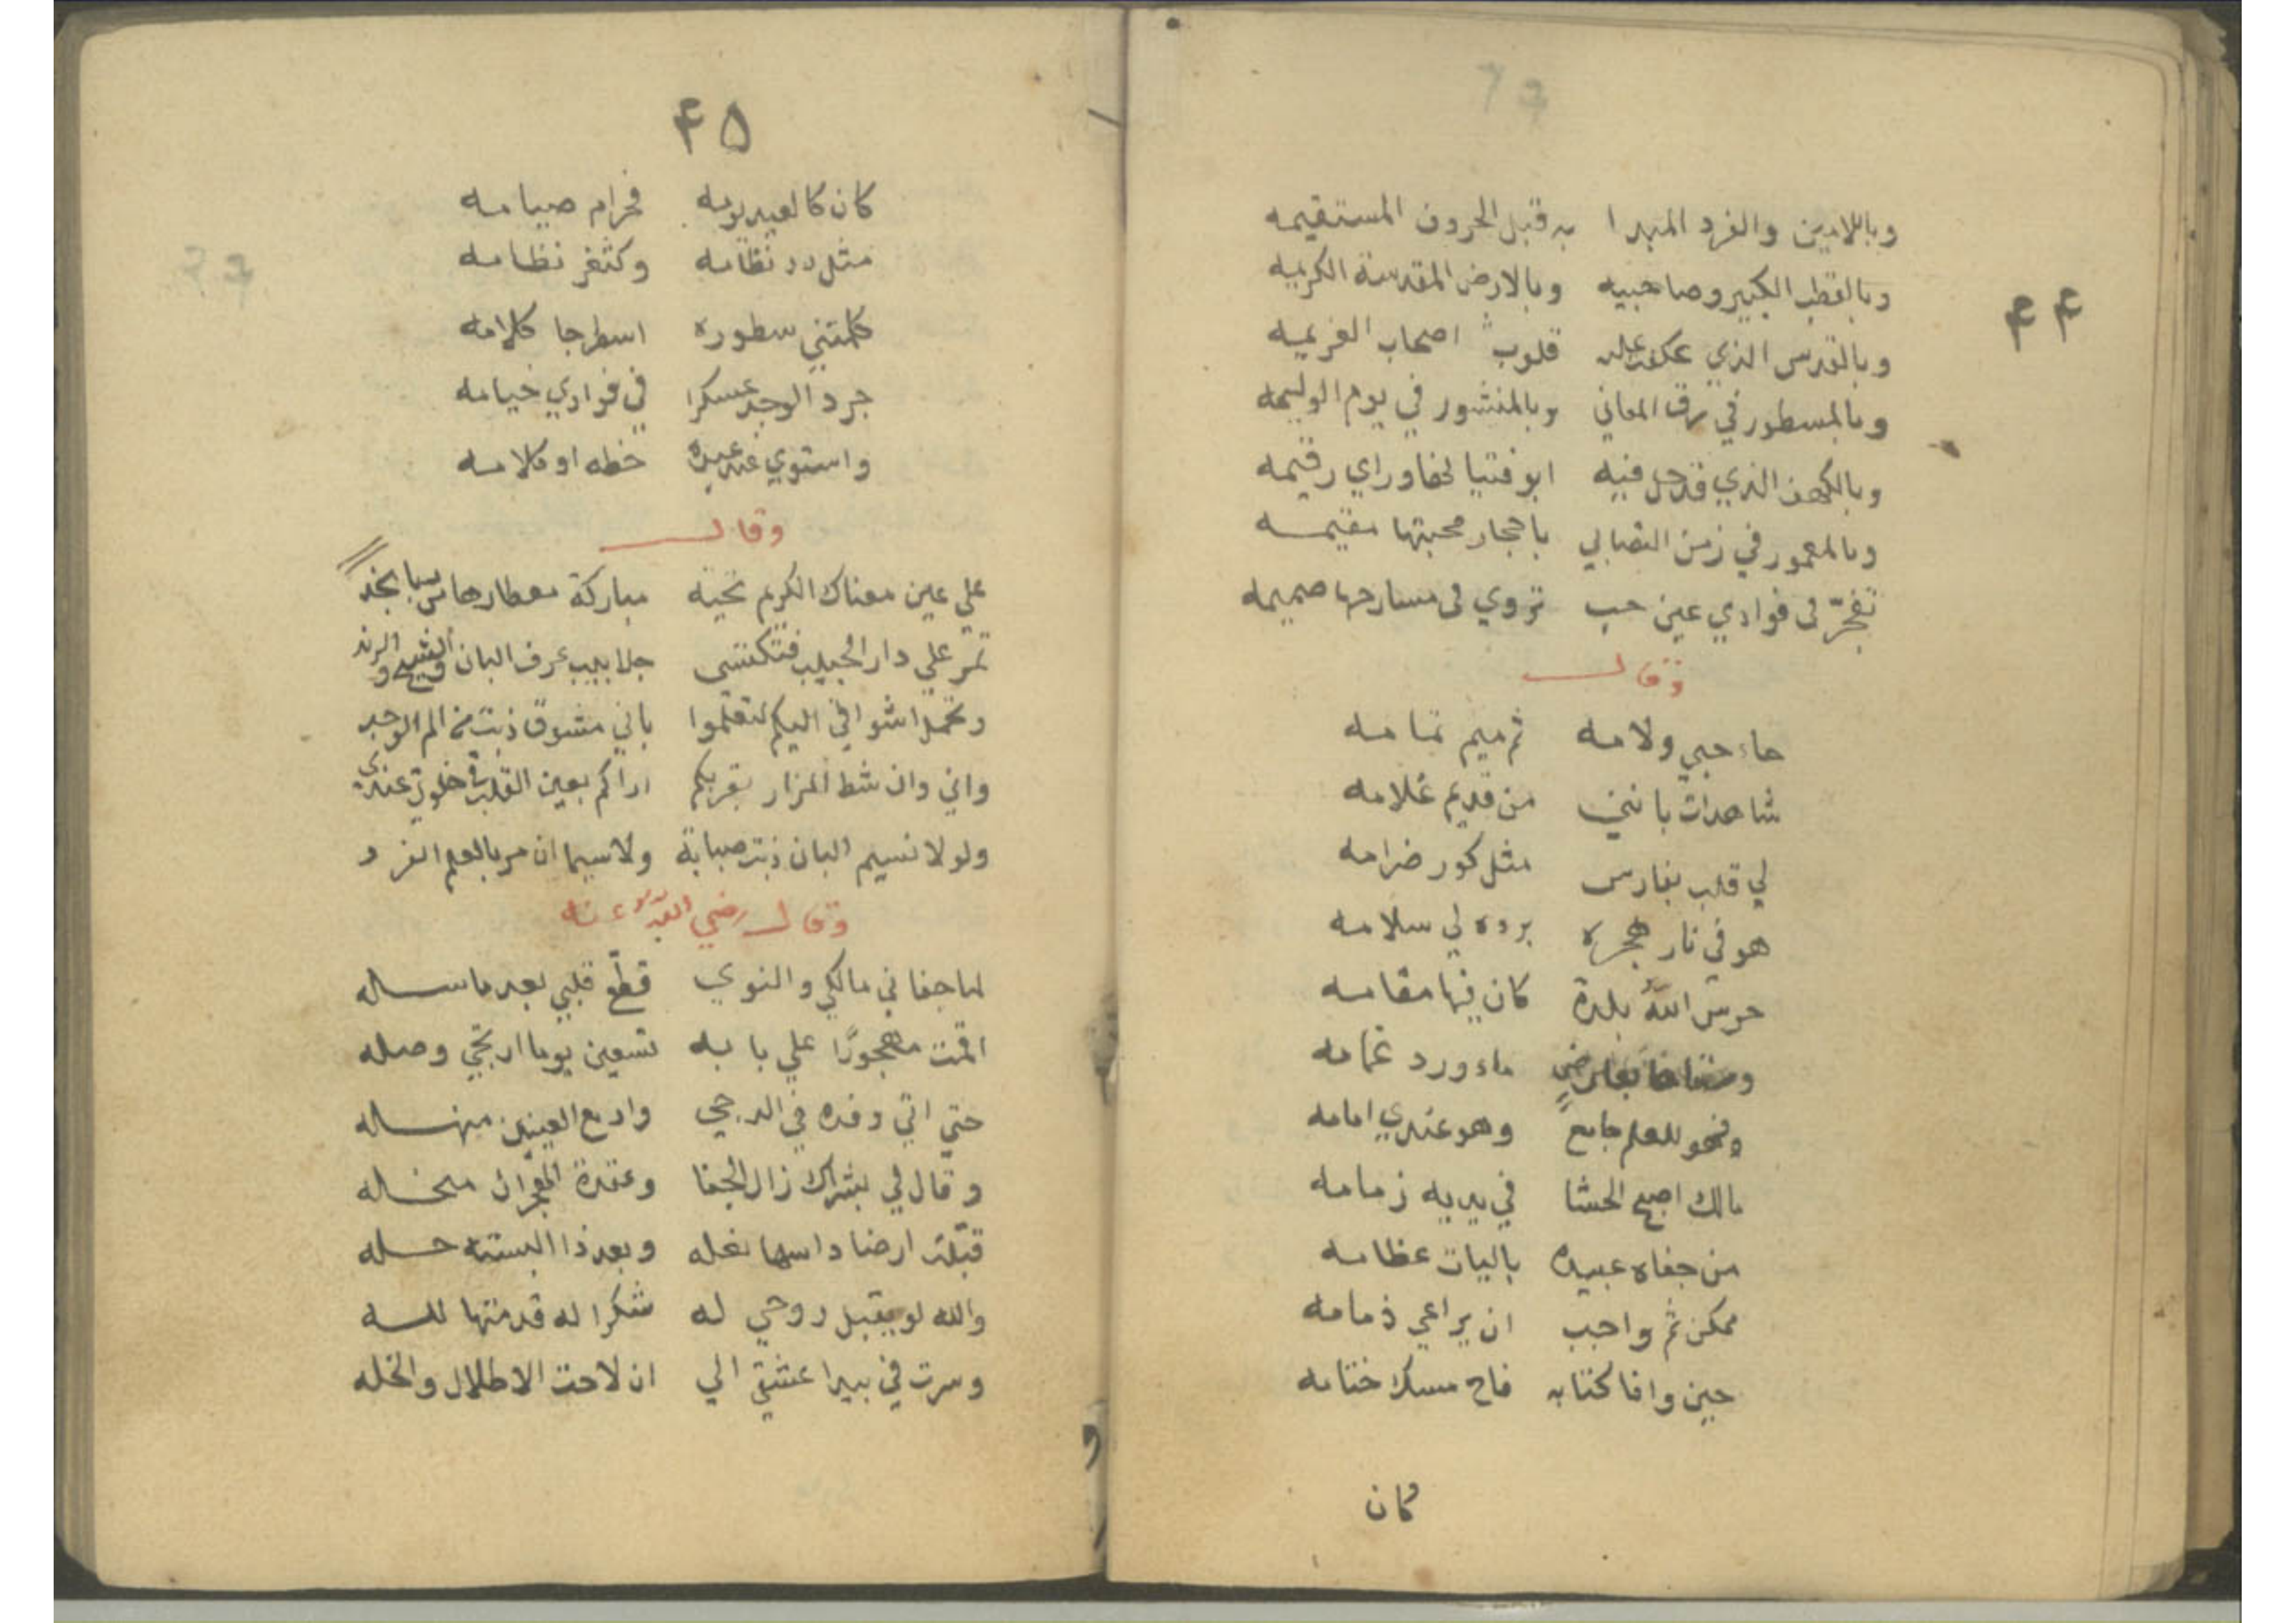 ۴۴
وباللامين والفرد المبدا به قبل الحروف المستقيمه
وبالقطب الكبير وصاحبيه وبالارض المقدسة الكريمه
وبالقدس الذي عكفت عليه قلوب اصحاب العزيمه
وبالمسطور في رق المعاني وبالمنشور في يوم الوليمه
وبالكهف الذي قد حل فيه ابو فتيا لخفا وراي رقيمه
وبالمعمور في زمن التصابي باحجار محبتها مقيمه
تفجّر لى فوادي عين حب تروي لى مسارحها صميمه
وقال
حاء حبي ولامه ثم ميم تمامه
شاهدات بانني من قديم غلامه
لي قلب بفارس مثل كور ضرامه
هو في نار هجره برده لي سلامه
حرس الله بلدة كان فيها مقامه
ماء ورد غمامه
ونحو للعلم جامع وهو عندي امامه
مالك اصبح الحشا في يديه زمامه
من جفاه عبيده باليات عظامه
ممكن ثم واجب ان يراعي ذمامه
حين وافا كتابه فاح مسك ختامه
كان
۴۵
كان كالعيد يومه فحرام صيامه
مثل در نظامه وكثغر نظامه
كلمتني سطوره اسطرجا كلامه
جرد الوجد عسكرا في فوادي خيامه
واستوي عند عبده خطه او كلامه
وقال
علي عين معناك الكريم تحية مباركة معطارها من سبا نجد
تمر علي دار الحبيب فتكتسى جلابيب عرف البان والشيح والرند
وتحمل اشواقي اليكم لتعلموا باني مشوق ذبت من الم الوجد
واني وان شط المزار بقربكم اراكم بعين القلب في خلوتي عندي
ولولا نسيم البان ذبت صبابة ولا سيما ان مر بالعلم الفرد
وقال رضي الله عنه
لما جفاني مالكي والنوي قطّع قلبي بعد ما سله
اقمت مهجورًا علي بابه تسعين يوما ارتجي وصله
حتي اتي وفده في الدجي وادمع العينين منهله
وقال لي بشراك زال الجفا وعقدة الهجران منحله
قبّلت ارضا داسها نعله وبعد ذا البسته حله
والله لو يقبل روحي له شكرا له قدمتها لله
وسرت في بيدا عشقي الي ان لاحت الاطلال والخله